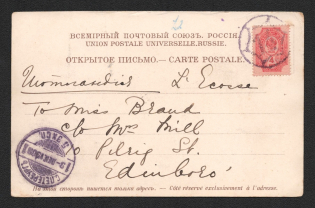 ВСЕМІРНЫЙ ПОЧТОВЫЙ СОЮЗЪ. РОССІЯ
UNION POSTALE UNIVERSELLE. RUSSIE.
ОТКРЫТОЕ ПИСЬМО.—CARTE POSTALE.
Шотландія L'Ecosse
To Miss Brand
c/o Mrs Mill
10 Pilrig St.
Edinboro'
На этой сторонѣ пишется только адресъ. — Côté réservé exclusivement à l'adresse.